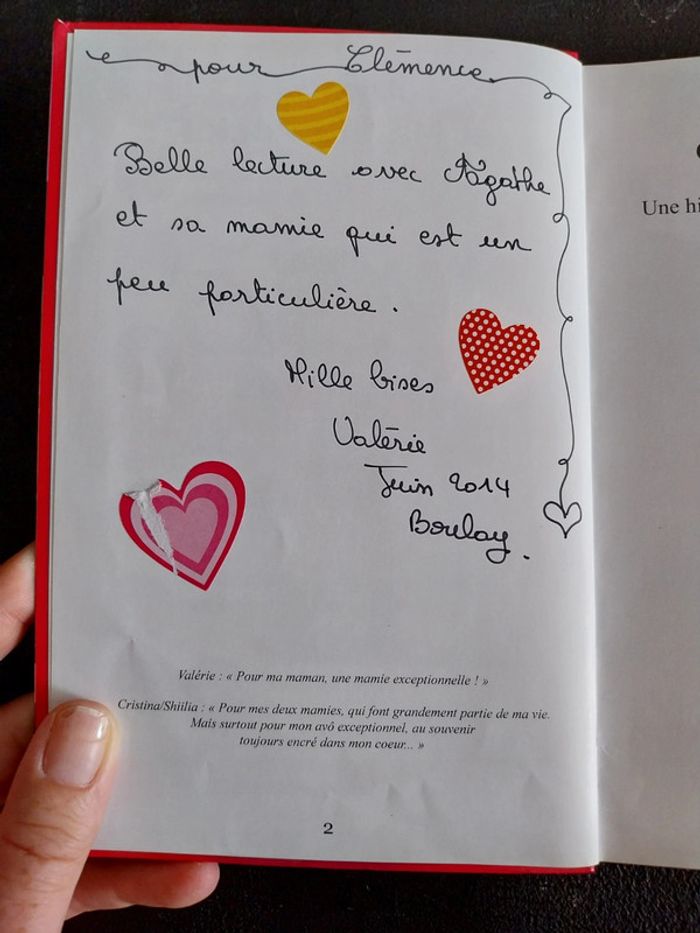 pour Clémence
Belle lecture avec Agathe
et sa mamie qui est un
peu particulière.
Mille bises
Valérie
Juin 2014
Boulay.
Une hi
Valérie : « Pour ma maman, une mamie exceptionnelle ! »
Cristina/Shiilia : « Pour mes deux mamies, qui font grandement partie de ma vie.
Mais surtout pour mon avô exceptionnel, au souvenir
toujours encré dans mon coeur... »
2